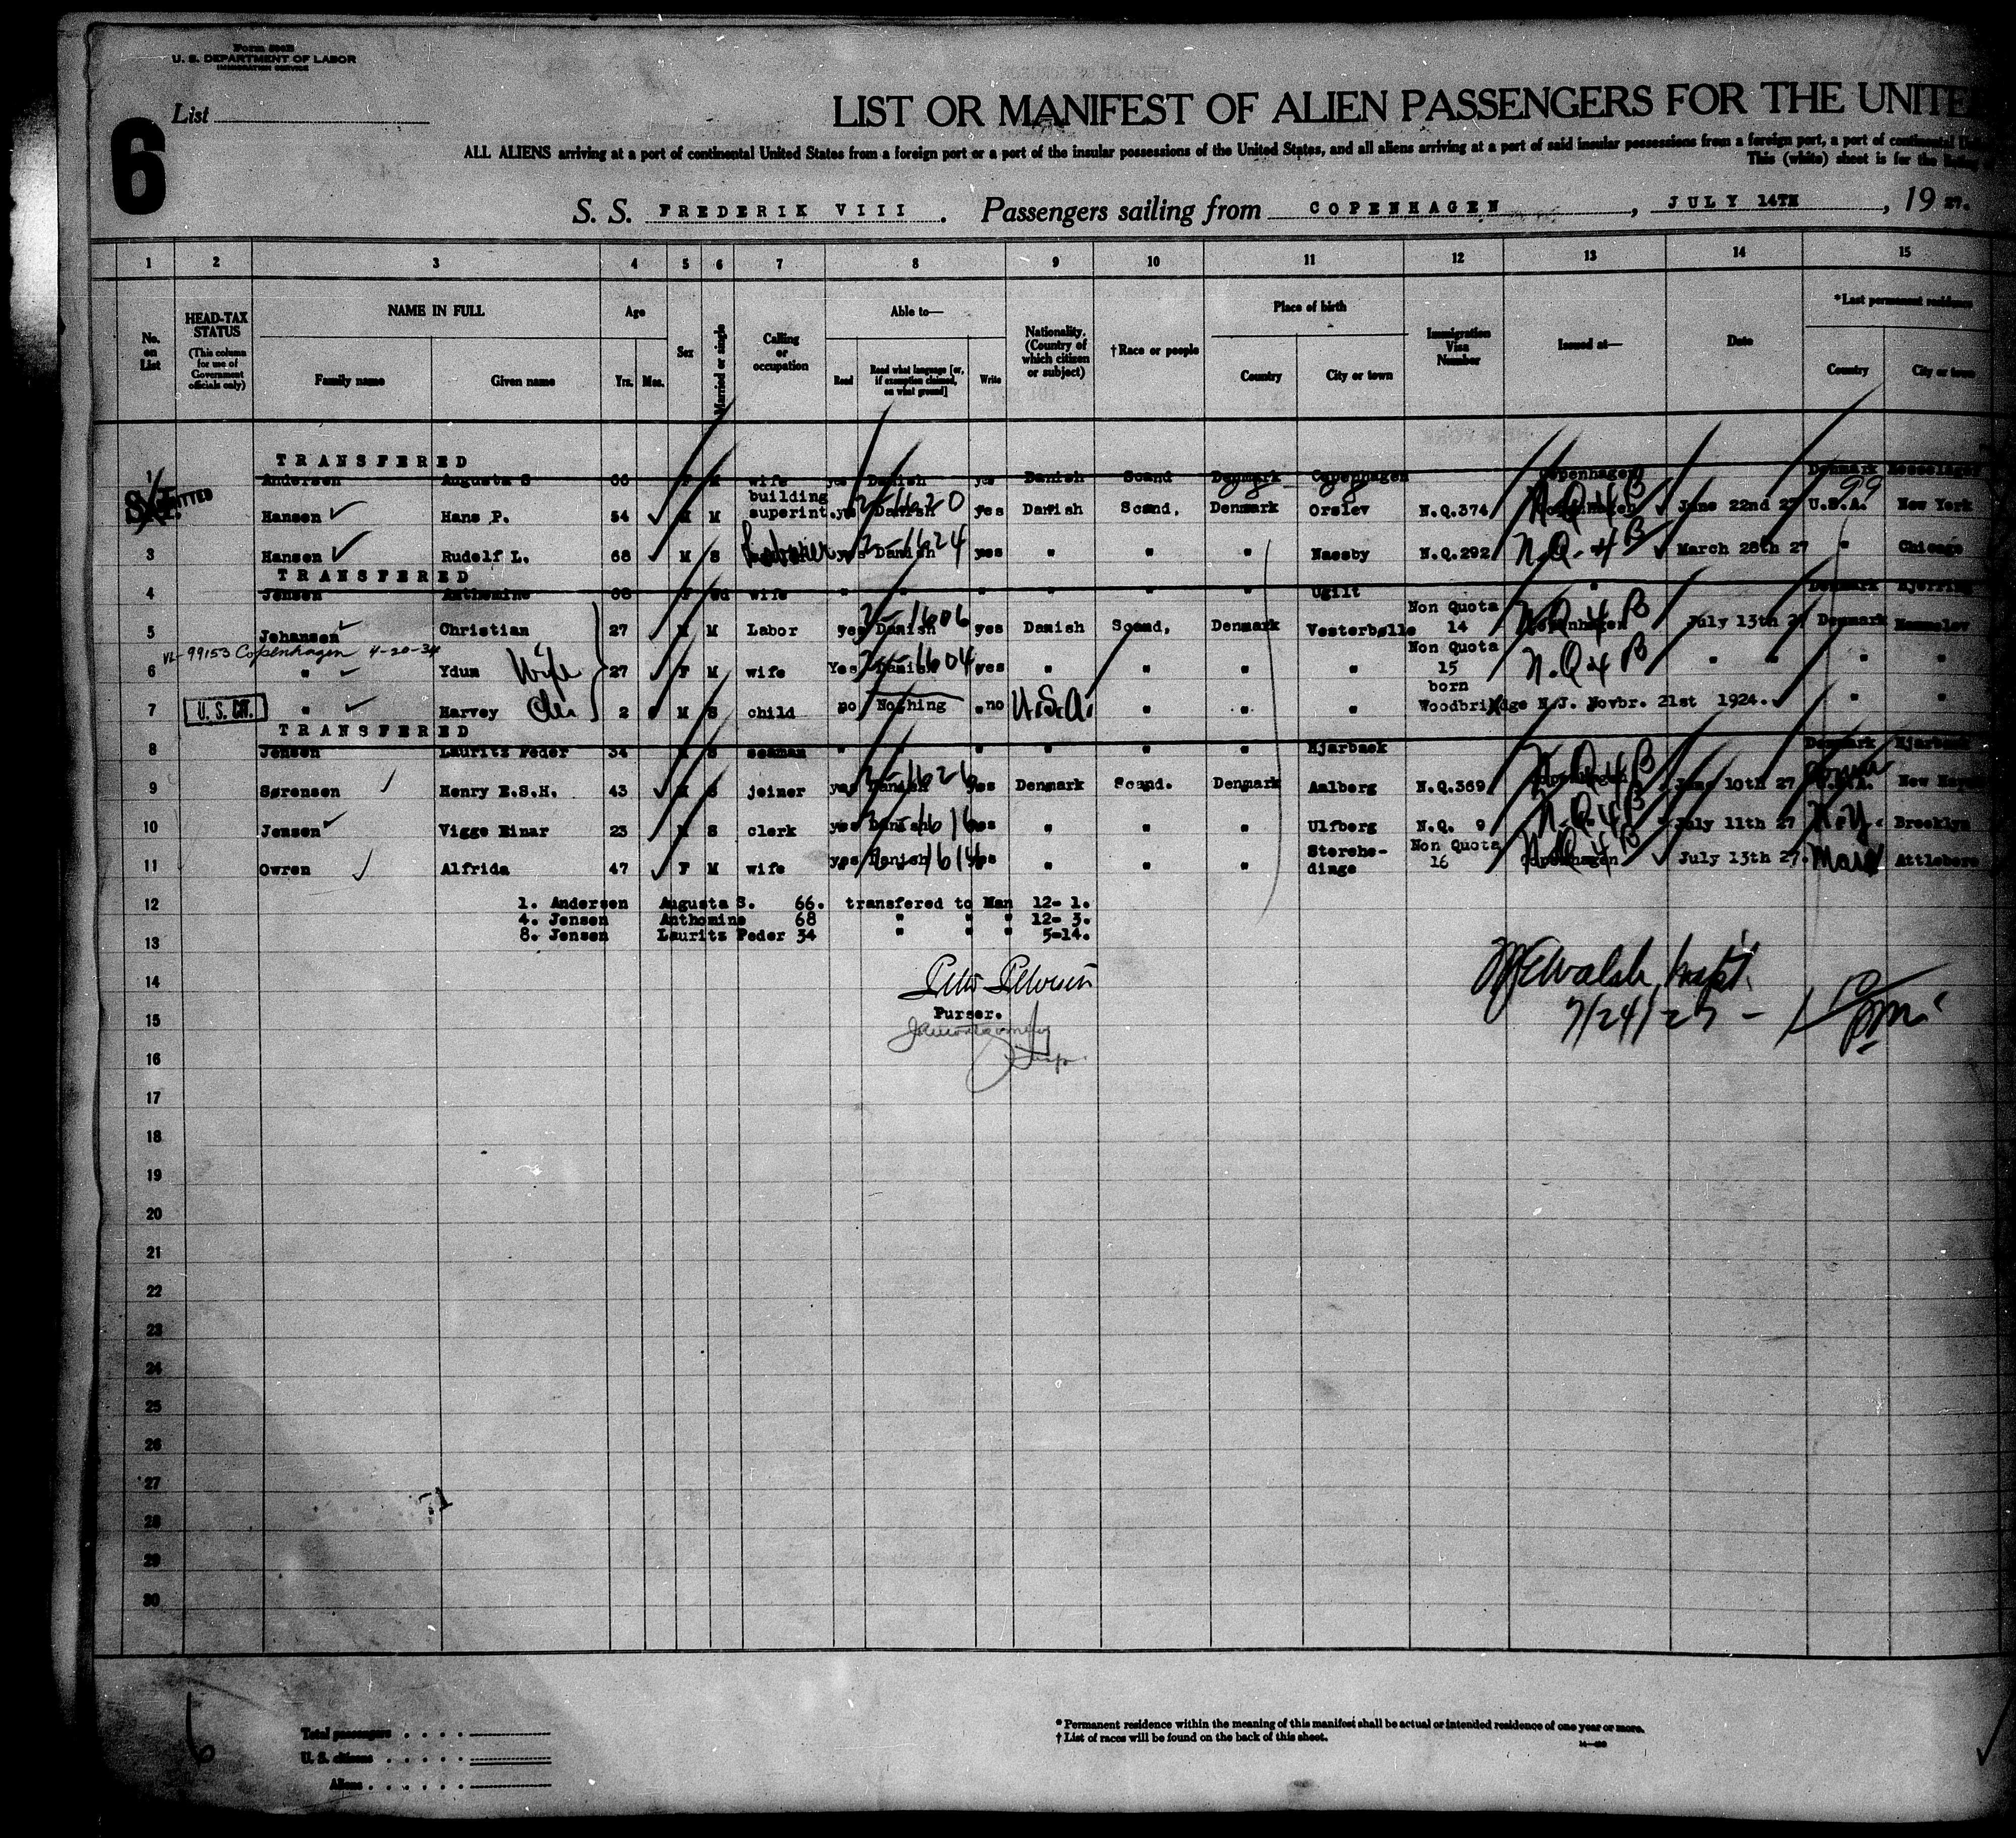 Form 500B
U. S. DEPARTMENT OF LABOR
IMMIGRATION SERVICE
6
List
LIST OR MANIFEST OF ALIEN PASSENGERS FOR THE UNITE
ALL ALIENS arriving at a port of continental United States from a foreign port or a port of the insular possessions of the United States, and all aliens arriving at a port of said insular possessions from a foreign port, a port of continental
This (white) sheet is for the listing
S. S. FREDERIK VIII. Passengers sailing from COPENHAGEN, JULY 14TH, 19 27.
1 2 3 4 5 6 7 8 9 10 11 12 13 14 15
No. on List
HEAD-TAX STATUS (This column for use of Government officials only)
NAME IN FULL
Family name Given name
Age Yrs. Mos.
Sex
Married or single
Calling or occupation
Able to— Read Read what language [or, if exemption claimed, on what ground] Write
Nationality. (Country of which citizen or subject)
†Race or people
Place of birth Country City or town
Immigration Visa Number
Issued at—
Date
*Last permanent residence Country City or town
TRANSFERED
1 Andersen Augusta S 66 F M wife yes Danish yes Danish Scand Denmark Copenhagen Copenhagen Denmark
ADMITTED Hansen Hans P. 54 M M building superint. yes Danish 2-1620 yes Danish Scand, Denmark Orslev N.Q.374 Copenhagen N.Q 4 B June 22nd 27 U.S.A. 99 New York
3 Hansen Rudolf L. 68 M S Laborer yes Danish 2-1624 yes " " " Naesby N.Q.292 N.Q. 4 B March 28th 27 " Chicago
TRANSFERED
4 Jensen Anthomine 68 F Wd wife " " " " " " Ugilt " Denmark Hjørring
5 Johansen Christian 27 M M Labor yes Danish 2-1606 yes Danish Scand, Denmark Vesterbølle Non Quota 14 Copenhagen N.Q 4 B July 13th 27 Denmark
VL-99153 Copenhagen 4-20-34
6 " Ydum Wife 27 F M wife Yes Danish 2-1604 yes " " " Non Quota 15 N.Q 4 B " " " "
7 U. S. CIT. " Harvey Ch. 2 M S child no Nothing no U.S.A. " " " born Woodbridge N.J. Novbr. 21st 1924. " "
TRANSFERED
8 Jensen Lauritz Peder 34 M S seaman " " " " " " Hjarbaek Denmark Hjarbaek
9 Sørensen Henry E.S.H. 43 M S joiner yes Danish 2-1626 yes Denmark Scand. Denmark Aalberg N.Q.369 Copenhagen N.Q 4 B June 10th 27 U.S.A. Conn New
10 Jensen Viggo Einar 23 M S clerk yes Danish 2-1616 yes " " " Ulfberg N.Q. 9 N.Q. 4 B July 11th 27 N.Y. Brooklyn
11 Owren Alfrida 47 F M wife yes Danish 2-1614 yes " " " Storehe-dinge Non Quota 16 Copenhagen N.Q 4 B July 13th 27. Mass Attleboro
12 1. Andersen Augusta S. 66. transfered to Man 12- 1.
4. Jensen Anthomine 68 " " " 12- 3.
13 8. Jensen Lauritz Peder 34 " " " 5-14.
14
Purser.
15
Insp.
16
Walsh, Inspt.
7/24/27 -
17
18
19
20
21
22
23
24
25
26
27
71
28
29
30
6
Total passengers
U. S. citizens
Aliens
* Permanent residence within the meaning of this manifest shall be actual or intended residence of one year or more.
† List of races will be found on the back of this sheet.